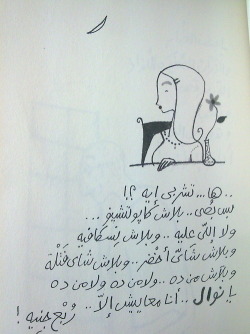 ..ها... تشربى إيه ؟!
بس بُصّى.. بلاش كابوتشينو ...
ولا إللى عليه .. وبلاش نسكافيه
وبلاش شاى أخضر.. وبلاش شاى فتلة
وبلاش من ده .. ولا من ده ولا من ده
يا نوال .. أنا معاييش إلاّ .. رُبع جنيه !